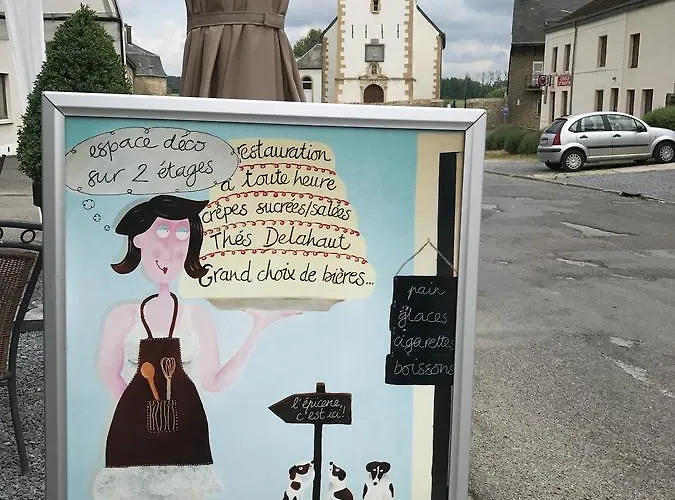 espace déco
sur 2 étages
restauration
à toute heure
crêpes sucrées/salées
Thés Delahaut
Grand choix de bières...
pain
glaces
cigarettes
boissons
l'épicerie,
c'est ici!